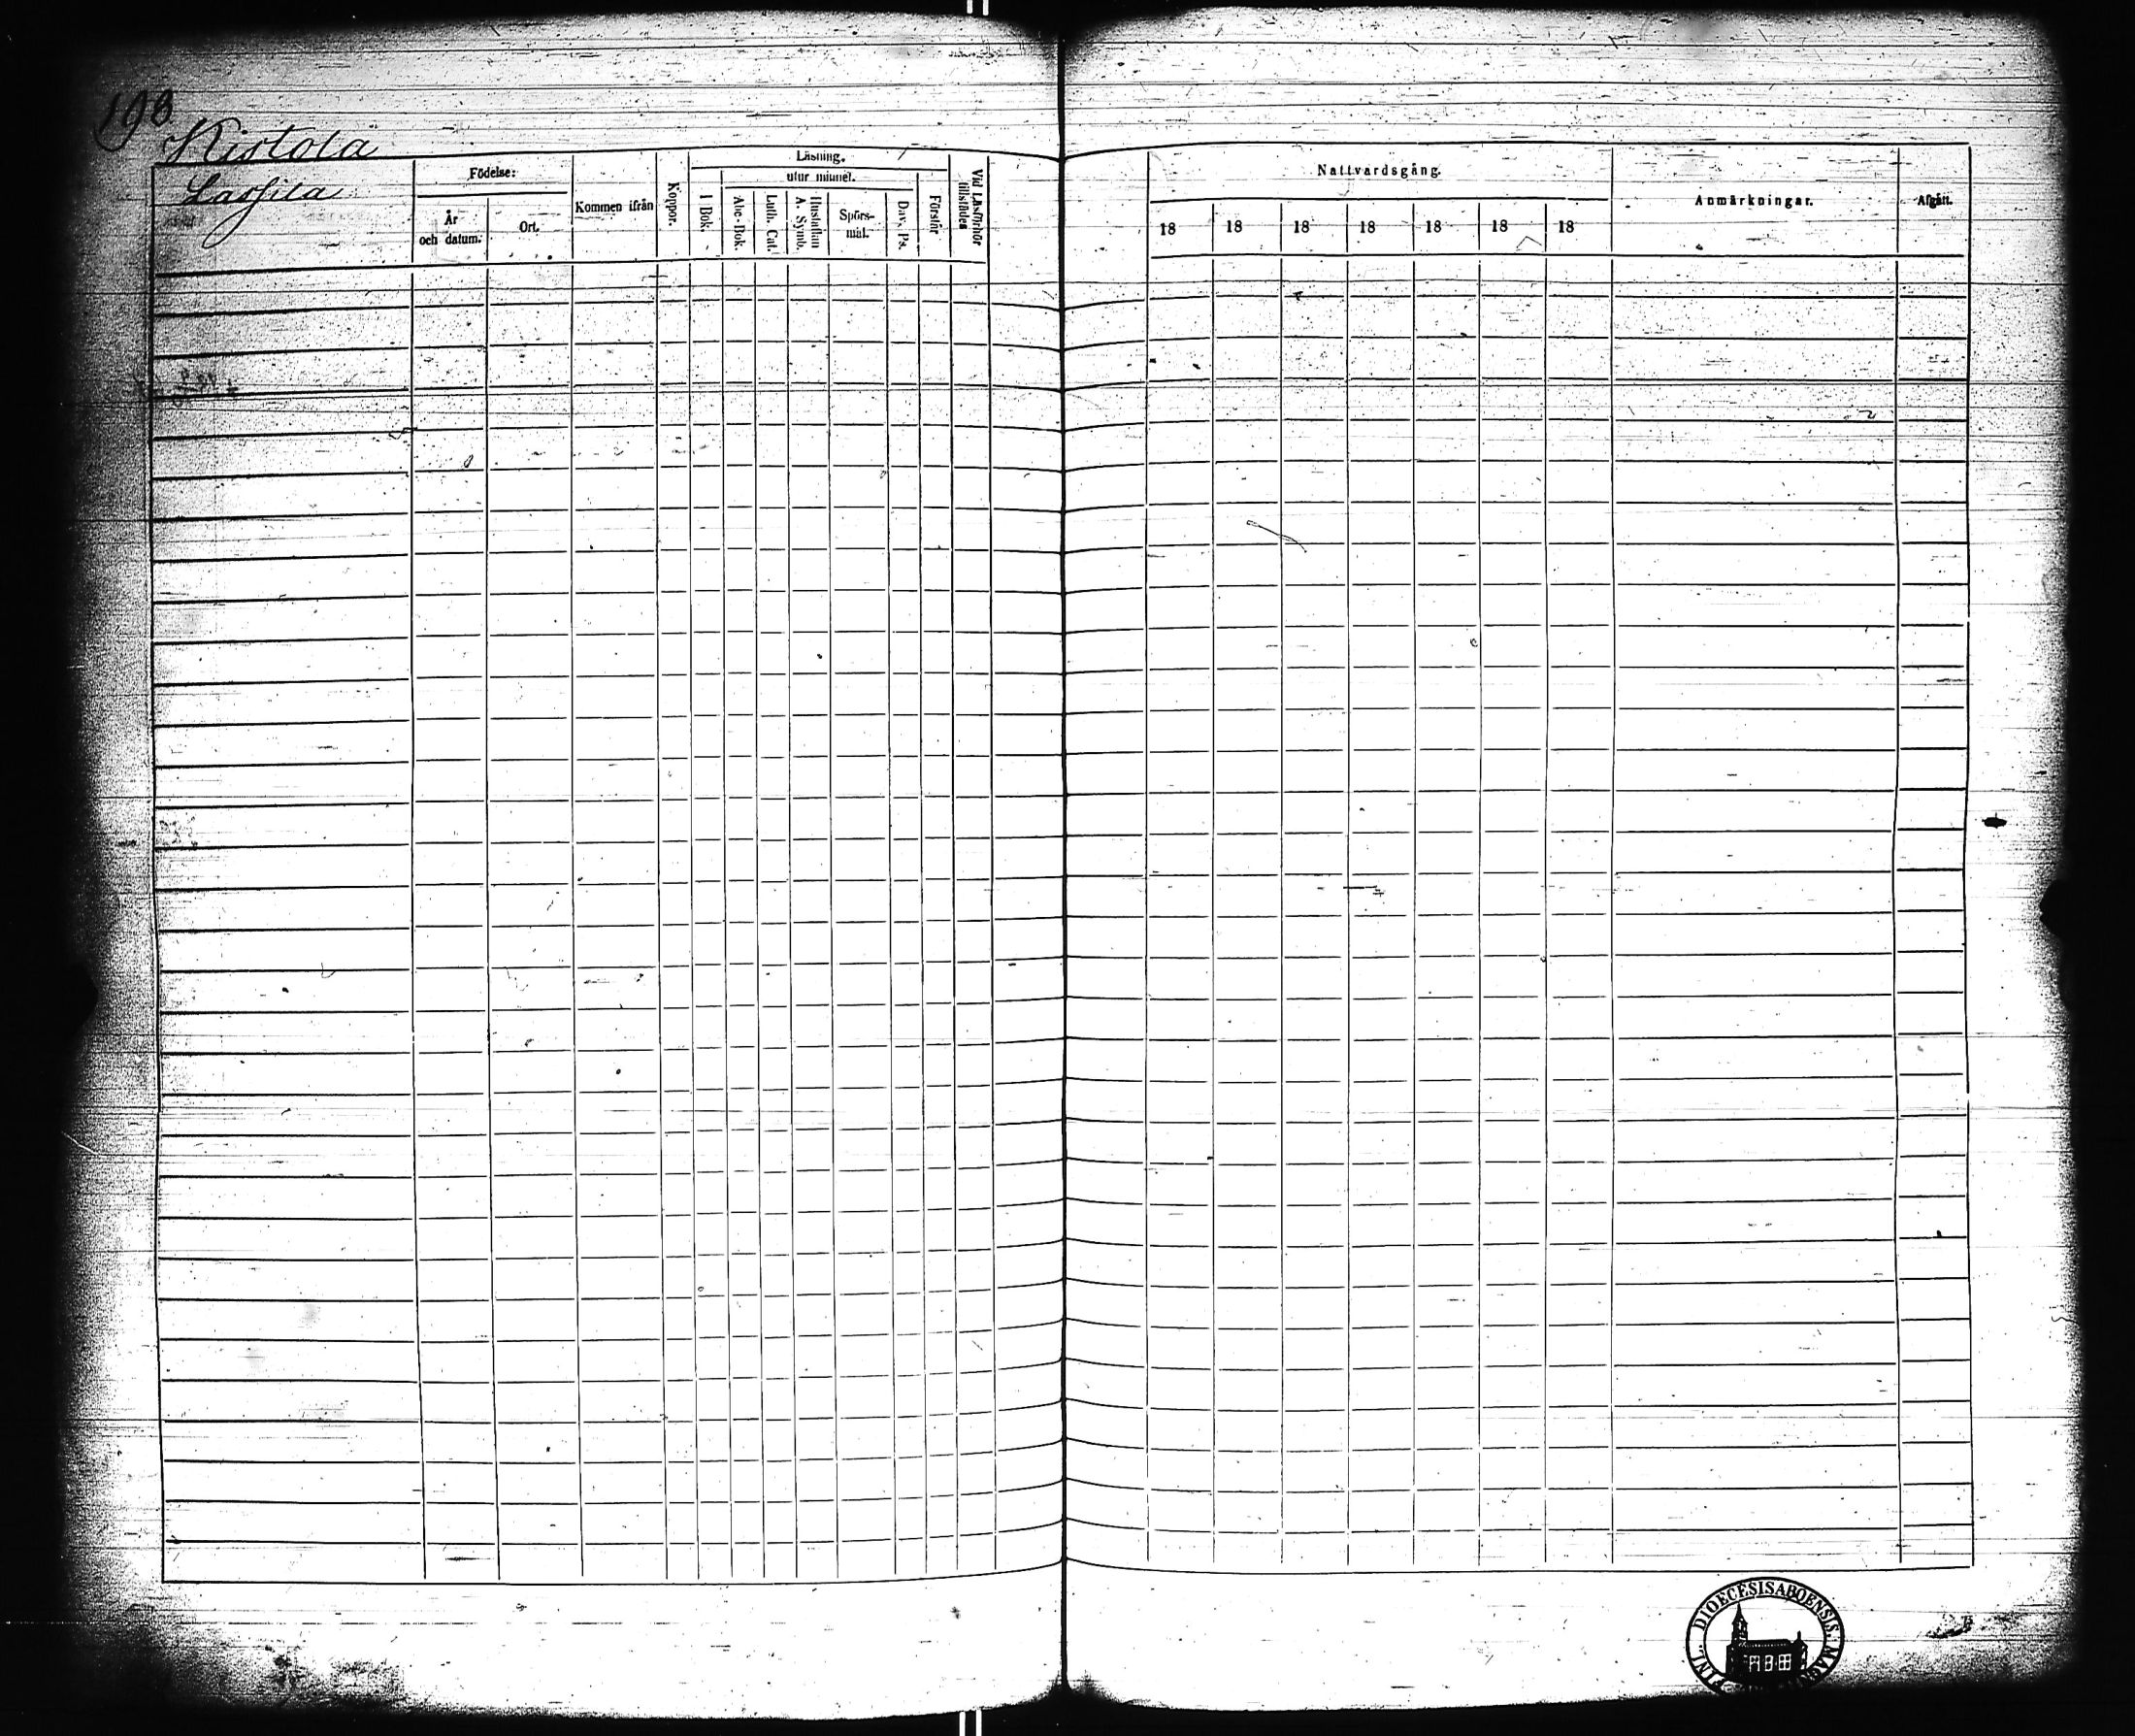 198
Kistola
Lassila
Födelse:
År
och datum.
Ort.
Kommen ifrån
Koppor.
Läsning.
utur minnet.
I Bok.
Abc-Bok.
Luth. Cat.
Hustaflan
A. Symb.
Spörs-
mål.
Dav. Ps.
Förstår
Vid Läsförhör
tillstädes
Nattvardsgång.
18 18 18 18 18 18 18
Anmärkningar.
Afgått.
DIOECESIS ABOENSIS